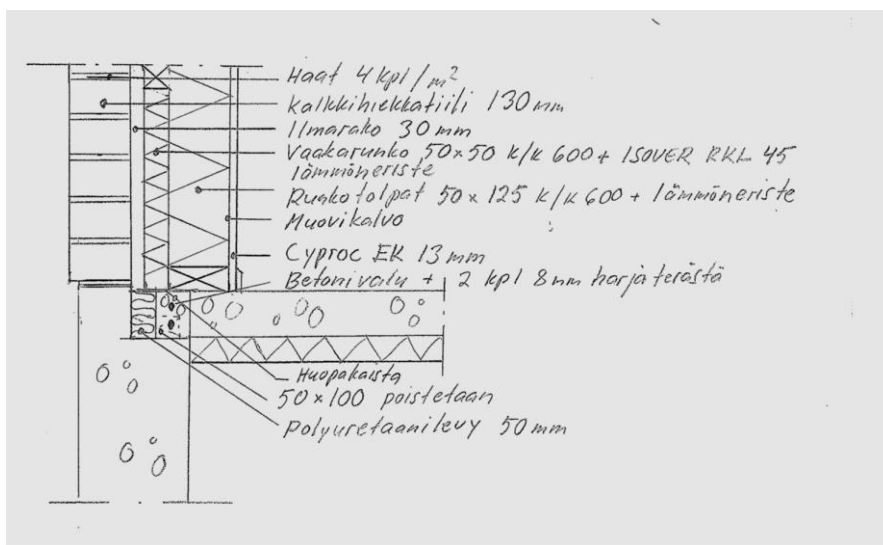 Haat 4 kpl/m²
Kalkkihiekkatiili 130 mm
Ilmarako 30 mm
Vaakarunko 50×50 k/k 600 + ISOVER RKL 45
lämmöneriste
Runkotolpat 50 x 125 k/k 600 + lämmöneriste
Muovikalvo
Cyproc EK 13 mm
Betonivalu + 2 kpl 8 mm harjaterästä
Huopakaista
50 × 100 poistetaan
Polyuretaanilevy 50 mm